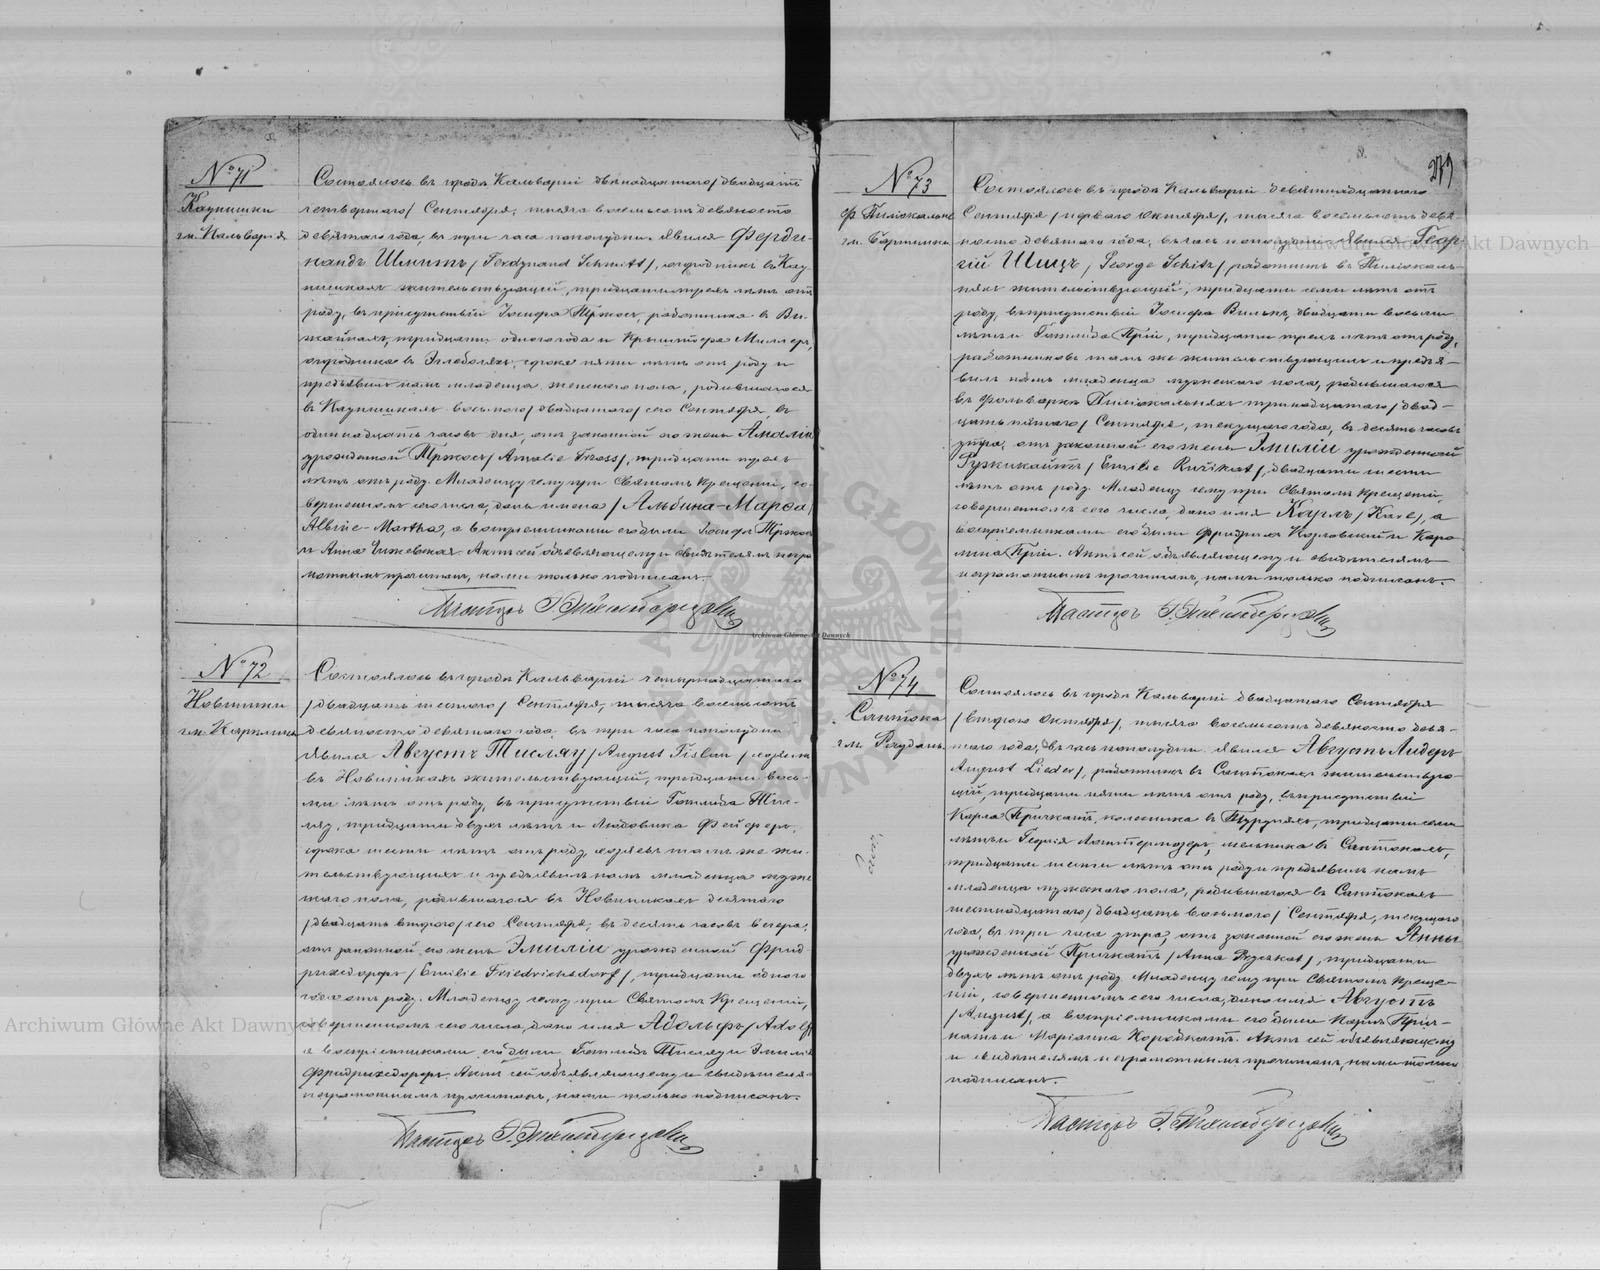 № 71
Каупишки
гм. Кальварія
Состоялось въ городѣ Кальваріи двѣнадцатаго /двадцать
четвертаго/ Сентября, тысяча восемьсотъ девяносто
девятаго года, въ три часа пополудни. Явился Ферди-
нандъ Шмитъ /Ferdynand Schmitt/, огородникъ въ Кау-
пишкахъ жительствующій, тридцати трехъ лѣтъ отъ
роду, въ присутствіи Іосифа работника въ Ви-
тридцати одного года и Миллеръ,
огородника въ сорока пяти лѣтъ отъ роду и
предъявилъ намъ младенца женскаго пола, родившагося
въ Каупишкахъ восьмого /двадцатаго/ сего Сентября, въ
одиннадцать часовъ дня, отъ законной его жены Амаліи
урожденной /Amalie Tross/, тридцати трехъ
лѣтъ отъ роду. Младенцу сему при Святомъ Крещеніи, со-
вершенномъ сего числа, даны имена /Альбина-Марѳа/
Albine-Martha, а воспріемниками его были Іосифъ
и Анна Актъ сей объявляющему и свидѣтелямъ негра-
мотнымъ прочитанъ, нами только подписанъ.
Пасторъ
№ 72
Новинники
Состоялось въ городѣ Кальваріи четырнадцатаго
/двадцать шестого/ Сентября, тысяча восемьсотъ
девяносто девятаго года, въ три часа пополудни
явился Августъ Тислау /August Tislau/, хозяинъ
въ Новиникахъ жительствующій, тридцати вось-
ми лѣтъ отъ роду, въ присутствіи Готлиба Тис-
лау, тридцати двухъ лѣтъ и Людовика Фейферъ,
сорока шести лѣтъ отъ роду, хозяевъ тамъ же жи-
тельствующихъ и предъявилъ намъ младенца муже-
скаго пола, родившагося въ Новиникахъ десятаго
/двадцать второго/ сего Сентября, въ десять часовъ вечера,
отъ законной его жены Эмиліи урожденной Фрид-
рихсдорфъ /Emilie Friedrichsdorf/, тридцати одного
года отъ роду. Младенцу сему при Святомъ Крещеніи,
совершенномъ сего числа, дано имя Адольфъ /Adolf/
а воспріемниками его были Готлибъ Тислау и Эмилія
Фридрихсдорфъ. Актъ сей объявляющему и свидѣтелямъ
неграмотнымъ прочитанъ, нами только подписанъ.
Пасторъ
№ 73
ф. Пилюкальне
Состоялось въ городѣ Кальваріи девятнадцатаго
Сентября /перваго Октября/, тысяча восемьсотъ девя-
носто девятаго года, въ часъ пополудни явился Геор-
гій Шицъ /George Schitz/ работникъ въ Пилюкаль-
няхъ жительствующій, тридцати семи лѣтъ отъ
роду, въ присутствіи Іосифа Вилькъ, двадцати восьми
лѣтъ и Готлиба Прій, тридцати трехъ лѣтъ отъ роду,
работниковъ тамъ же жительствующихъ и предъя-
вилъ намъ младенца мужескаго пола, родившагося
въ фольваркѣ Пилюкальняхъ тринадцатаго /двад-
цать пятаго/ Сентября, текущаго года, въ десять часовъ
утра, отъ законной его жены Эмиліи урожденной
Ружикайтъ /Emilie Ružikat/, двадцати шести
лѣтъ отъ роду. Младенцу сему при Святомъ Крещеніи,
совершенномъ сего числа, дано имя Карлъ /Karl/, а
воспріемниками его были Фридрихъ Козловскій и Каро-
лина Прій. Актъ сей объявляющему и свидѣтелямъ
неграмотнымъ прочитанъ, нами только подписанъ.
Пасторъ
№ 74
Сантока
Состоялось въ городѣ Кальваріи двадцатаго Сентября
/второго Октября/, тысяча восемьсотъ девяносто девя-
таго года, въ часъ пополудни, явился Августъ Лидеръ
August Lieder/, работникъ въ Сантокахъ жительствую-
щій, тридцати пяти лѣтъ отъ роду, въ присутствіи
Карла Причкатъ, колесника въ тридцати семи
лѣтъ и Георгія мельника въ Сантокахъ,
тридцати шести лѣтъ отъ роду и предъявилъ намъ
младенца мужескаго пола, родившагося въ Сантокахъ
шестнадцатаго /двадцать восьмого/ Сентября, текущаго
года, въ три часа утра, отъ законной его жены Анны
урожденной Причкатъ /Anna тридцати
двухъ лѣтъ отъ роду. Младенцу сему при Святомъ Креще-
ніи, совершенномъ сего числа, дано имя Августъ
/August/, а воспріемниками его были Карлъ Прич-
катъ и Маріанна Актъ сей объявляющему
и свидѣтелямъ неграмотнымъ прочитанъ, нами только
подписанъ.
Пасторъ
Archiwum Główne Akt Dawnych
Archiwum Główne Akt Dawnych
Archiwum Główne Akt Dawnych